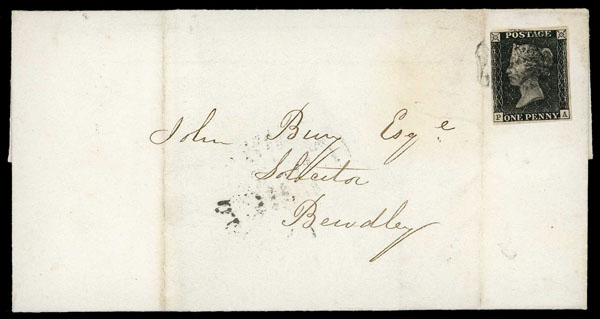 POSTAGE
P ONE PENNY A
John Bury Esqe
Solicitor
Bewdley